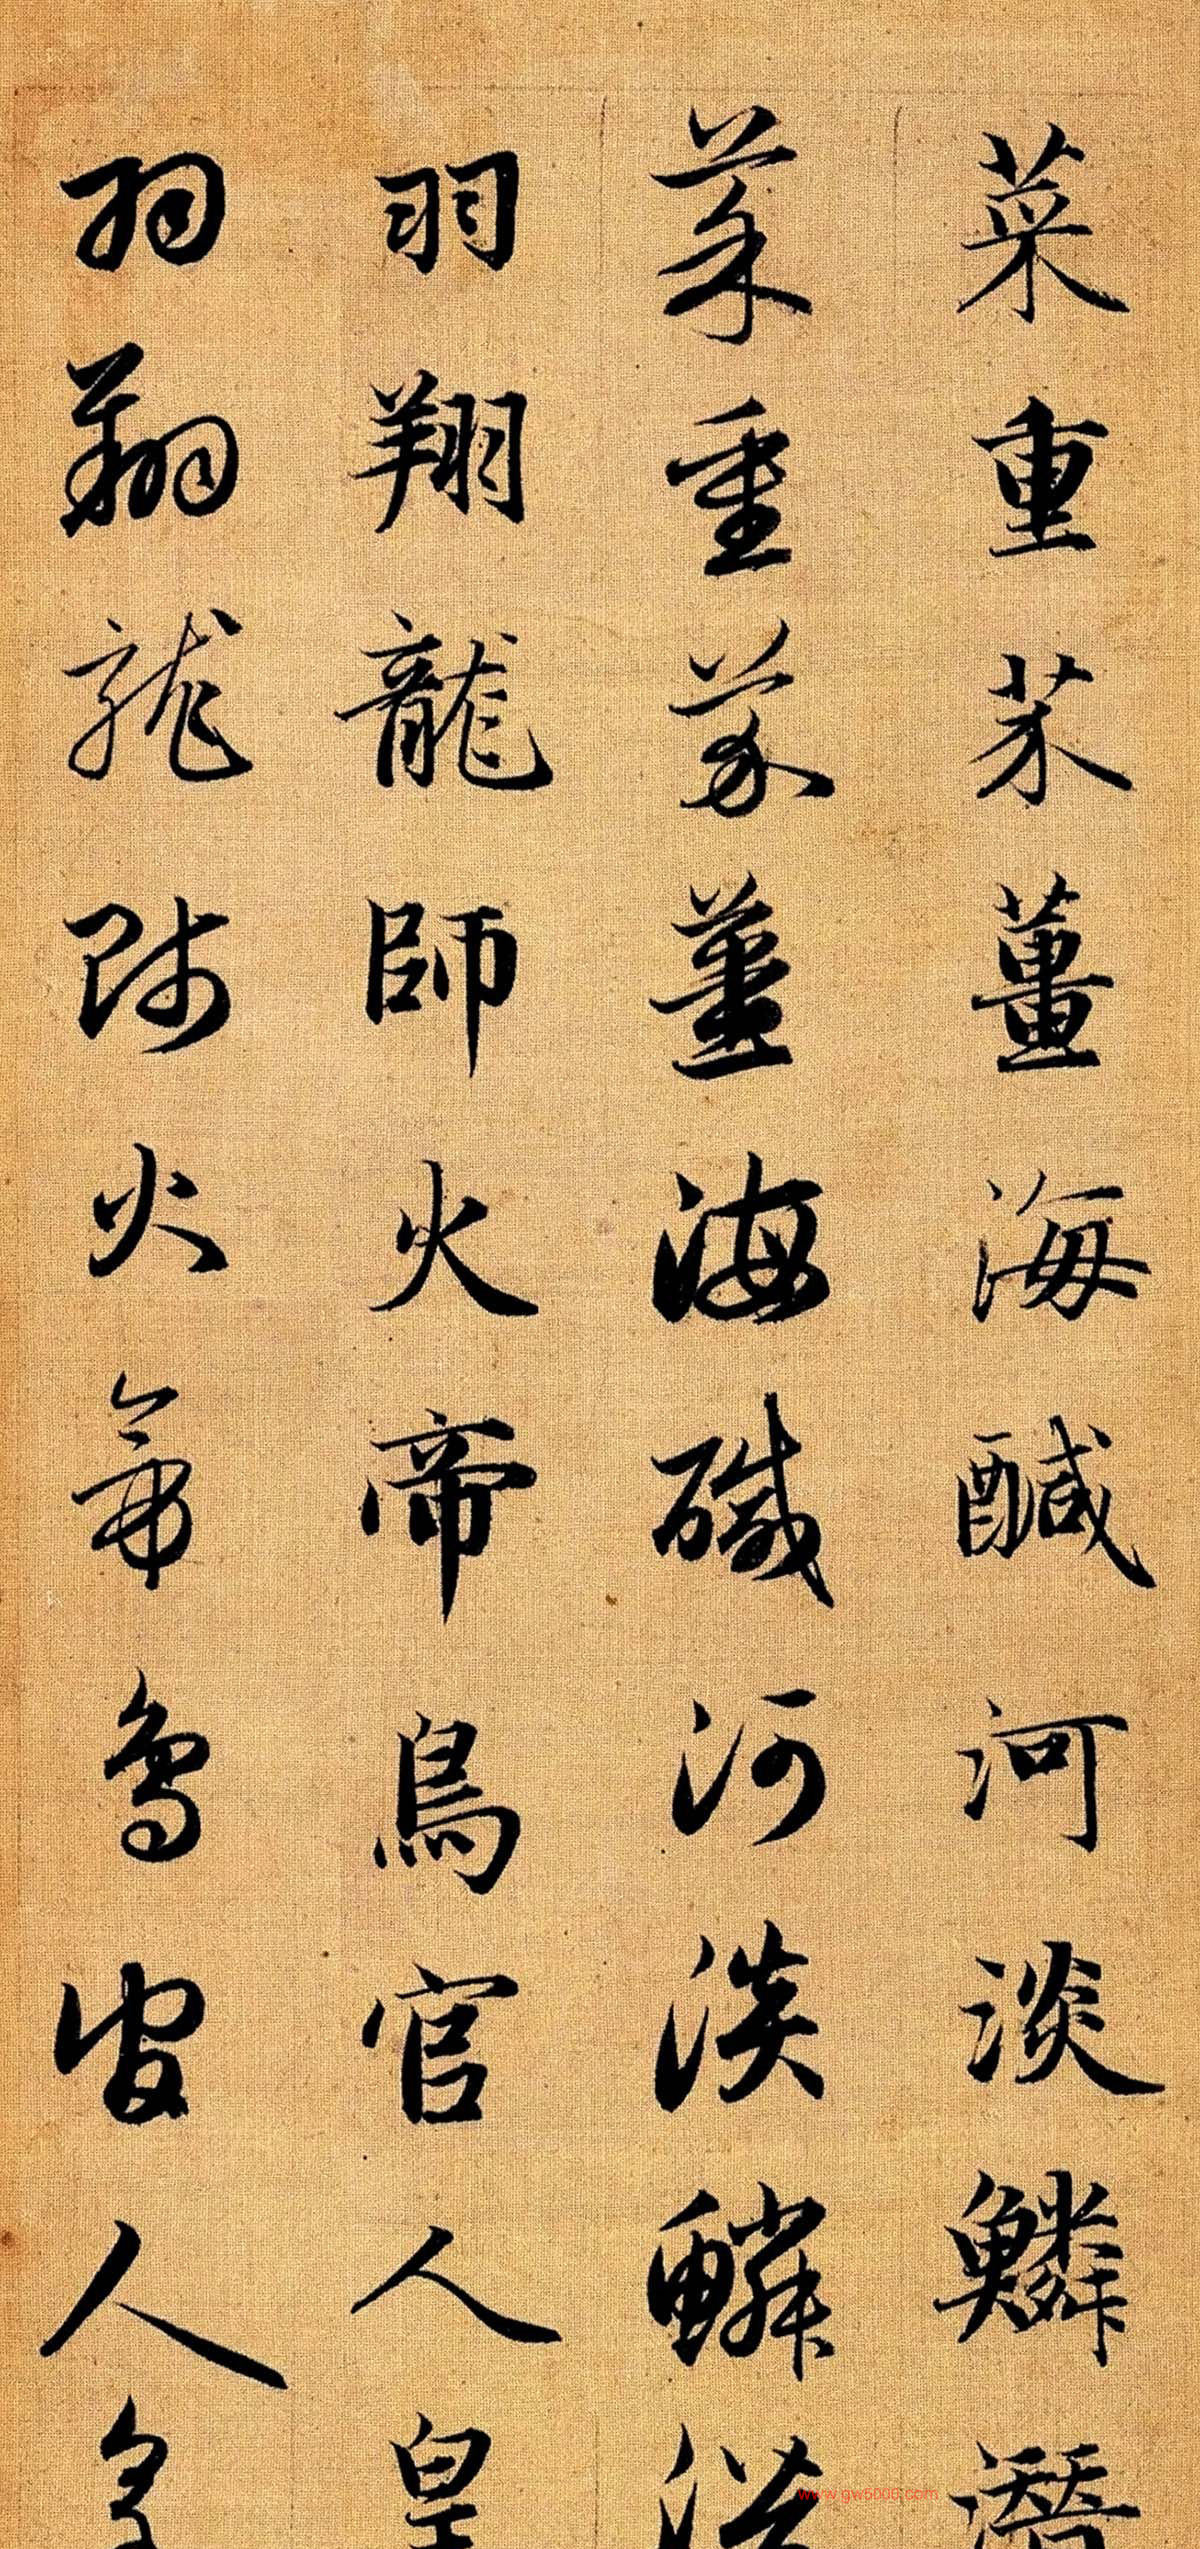 菜重芥薑海醎河淡鱗潛
菜重芥薑海碱河淡鱗潛
羽翔龍師火帝鳥官人皇
羽翔龍師火帝鳥官人皇
www.gw5000.com